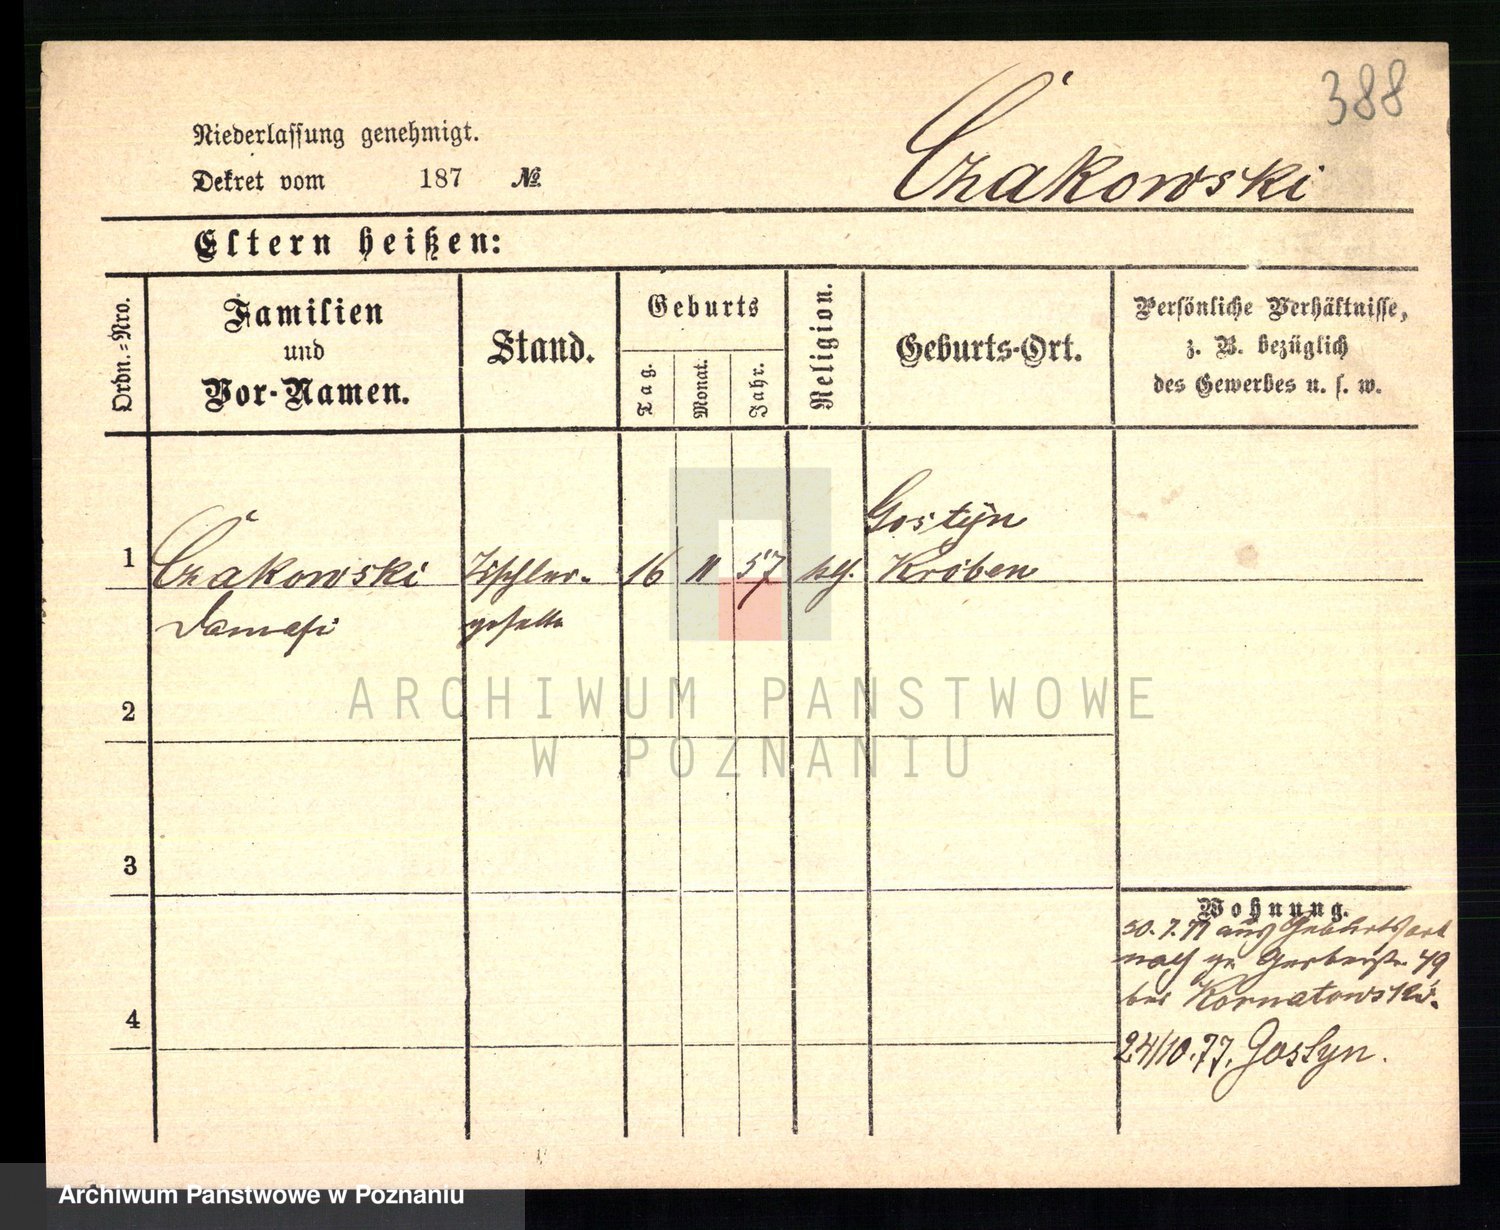 388
Niederlassung genehmigt.
Dekret vom 187 №
Czakowski
Eltern heißen:
Ordn.=Nro.
Familien
und
Vor-Namen.
Stand.
Geburts
Tag.
Monat.
Jahr.
Religion.
Geburts-Ort.
Persönliche Verhältnisse,
z. B. bezüglich
des Gewerbes u. s. w.
Gostyn
1 Czakowski Tischler- 16 11 57 kth. Kröben
Damasi geselle
2
3
4
Wohnung.
30. 7. 77 aus Geburtsort
nach gr Gerberstr. 49
bei Kornatowski.
24/10.77. Gostyn.
ARCHIWUM PAŃSTWOWE
W POZNANIU
Archiwum Państwowe w Poznaniu